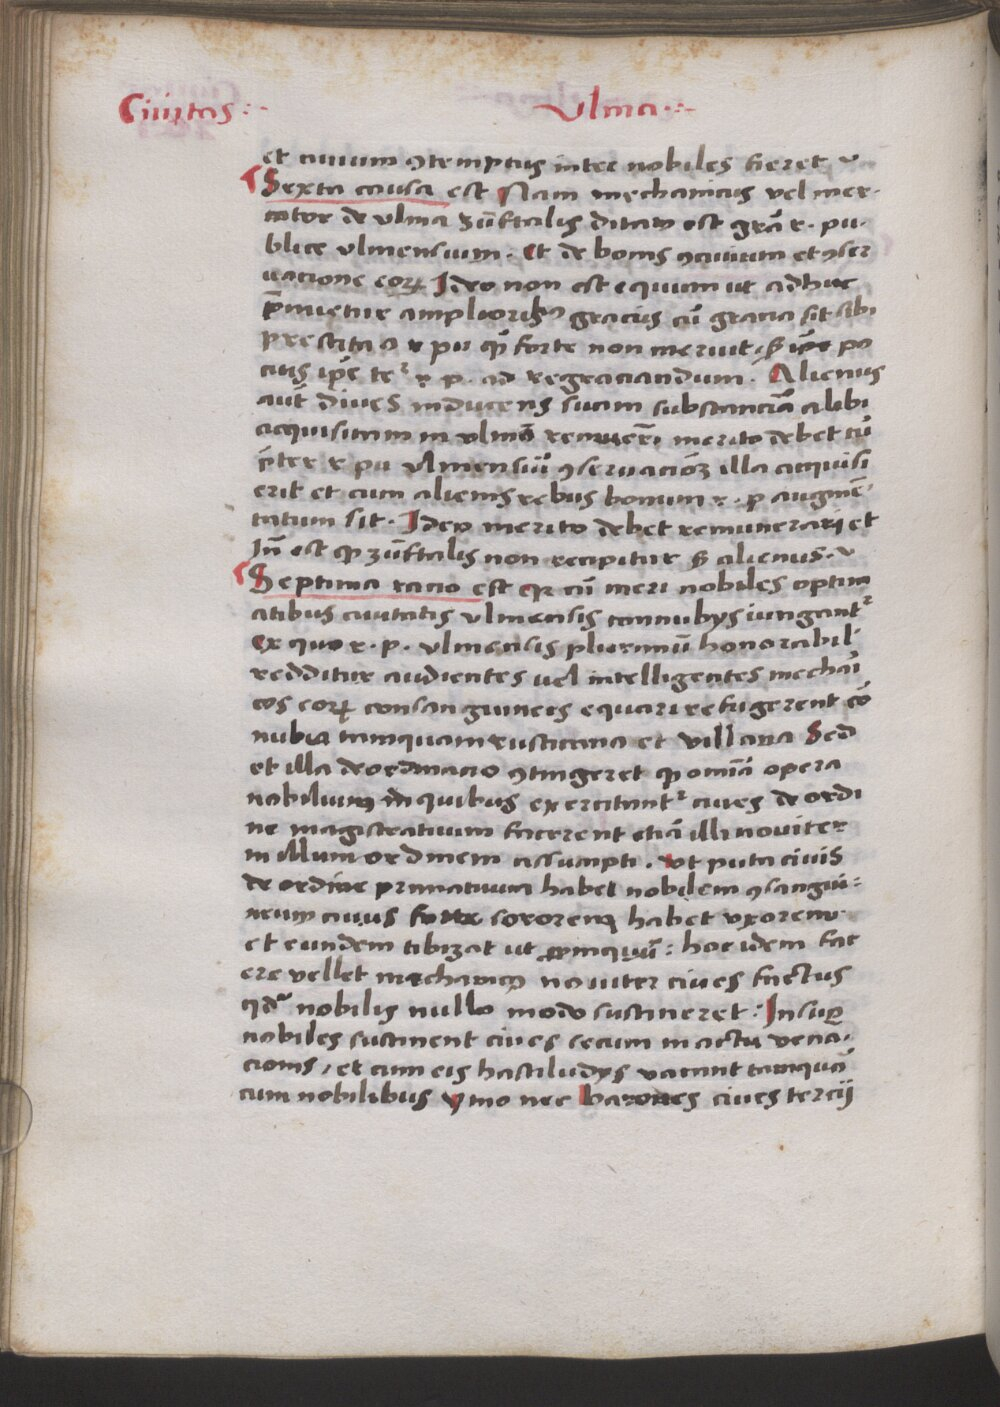 Ciuitas :·
Vlma ·:·
et ciuium ꝯtemptus inter nobiles fieret v
Sexta causa est Nam mechanicus vel mer-
cator de vlma zu̅ftalis ditatꝰ est gra̅ r. pu-
blice vlmensium. Et de bonis ꝯciuium et ꝯser
uacione eoꝝ Ideo non est equum ut adhuc
p̅muetur amplioribꝰ gracijs cu̅ gracia sit sibi
prestita a r pu qꝫ forte non meruit, sꝫ ipse po
cius ip̅e te r. p. ad regraciandum. Alienus
aut̅ diues inducens suam substancia̅ alibi
acquisitam in vlma̅ merito debet cu̅
p̅ter r pu vlmensiu̅ ꝯseruacio̅ꝫ illa acquisi
erit et cum alienis rebus bonum r. p augme̅-
tatum sit. Ideo merito debet remunerari et
In̅ est qꝫ zu̅ftalis non recipitur sꝫ alienus. v
Septima racio est qꝫ cu̅ meri nobiles optim
atibus ciuitatis vlmensis connubijs iungant᷑
Ex quo r. p. vlmensis plurimu̅ honorabil᷑
redditur audientes vel intelligentes mecha̅i
cos eoꝝ consanguineis equari refugerent co̅
nubia tamquam rusticana et villana Sed
et illa deordinacio ꝯtingeret qꝫ omia̅ opera
nobilium in quibus exercitant᷑ ciues de ordi
ne magistratuum facerent etia̅ illi nouiter
in illum ordinem assumpti. Vt puta ciuis
de ordine primatuum habet nobilem ꝯsangui-
neum cuius sororem habet vxorem
et eundem tibizat ut ꝓpinquu̅: hoc idem fac
ere vellet mechanicꝰ nouiter ciues factus
qd̅ nobilis nullo modo sustineret: Insuꝑ
nobiles sustinent ciues secum in actu vena-
cionis, et cum eis hastiludijs vacant tamqua̅
cum nobilibus ymo nec barones ciues tercij